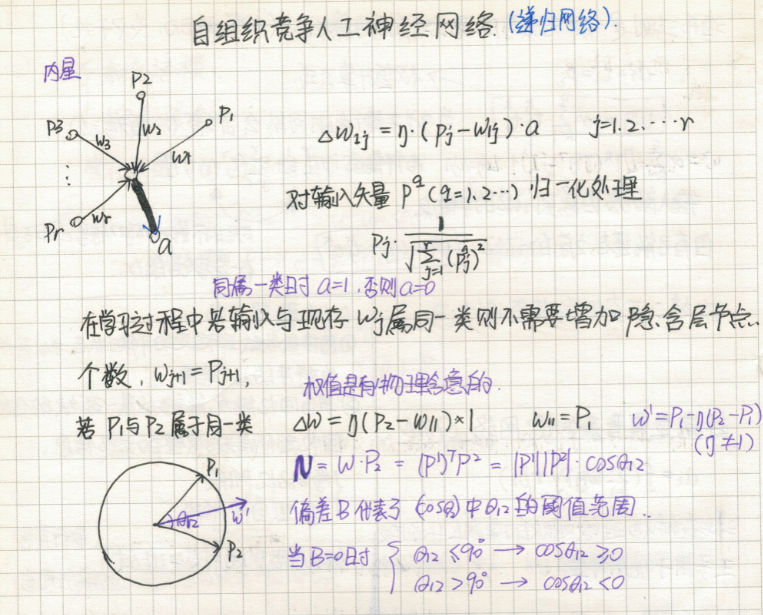 自组织竞争人工神经网络.(递归网络).
内星
P1
P2
P3
⋮
Pr
w1
w2
w3
wr
a
ΔW1j = η·(Pj-W1j)·a j=1.2.⋯r
对输入矢量 P^q (q=1.2⋯) 归一化处理
Pj· 1/√(Σ_{j=1}^{r} (Pj^q)²)
同属一类时 a=1.否则a=0
在学习过程中若输入与现存 Wj属同一类则不需要增加隐含层节点.
个数, Wj+1=Pj+1,
权值是有物理含意的.
若 P1与P2属于同一类 ΔW=η(P2-W11)×1 W11=P1 W'=P1-η(P2-P1)
(η≠1)
N=W·P2 = (P¹)ᵀP² = |P¹||P²|·cosθ12
偏差B代表了(cosθ)中θ12的阈值范围.
当B=0时 { θ12≤90° → cosθ12≥0
θ12>90° → cosθ12<0
P1
θ12
W'
P2